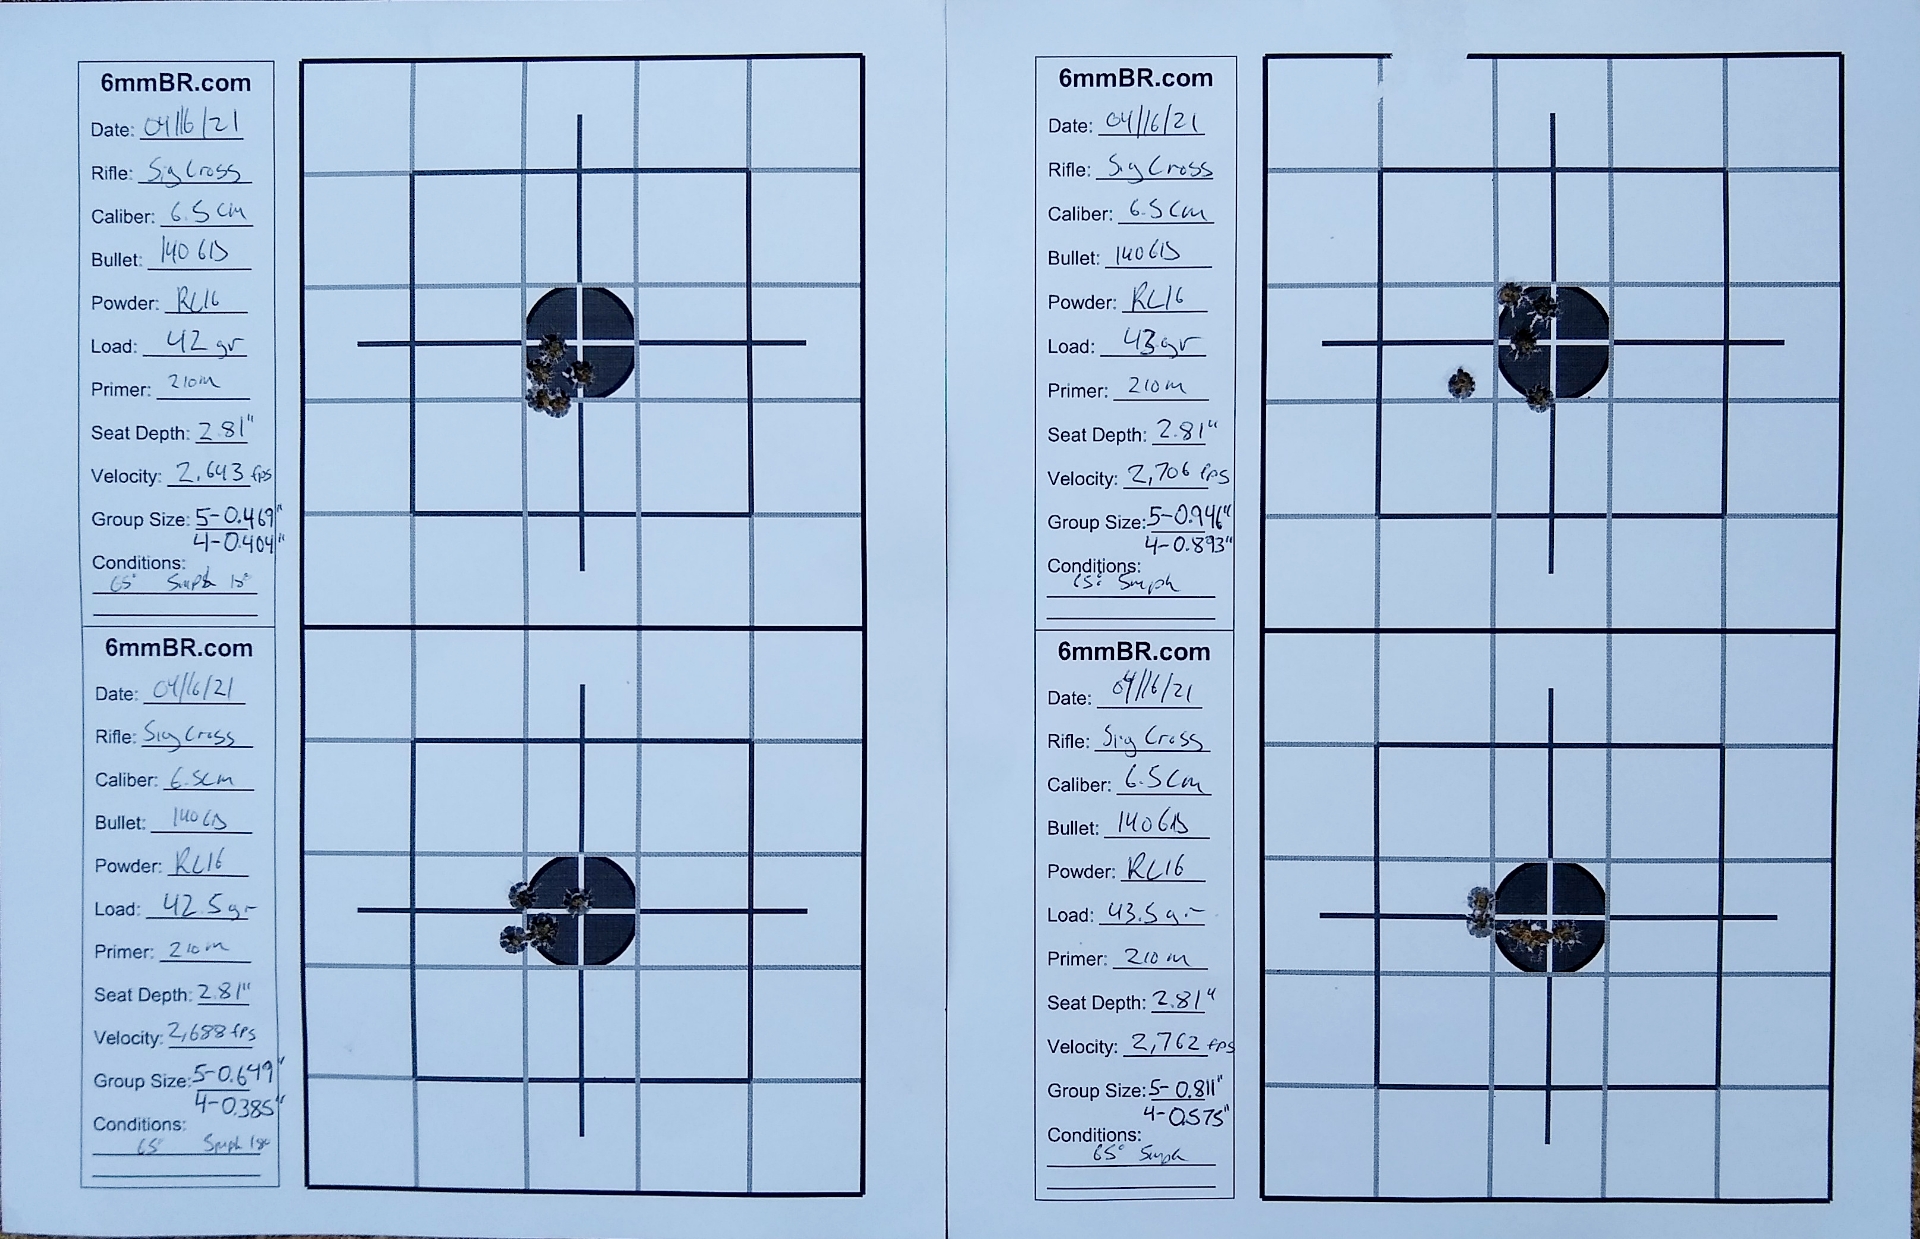 6mmBR.com
Date: 04/16/21
Rifle: Sig Cross
Caliber: 6.5 cm
Bullet: 140
Powder: RL16
Load: 42 gr
Primer: 210m
Seat Depth: 2.81"
Velocity: 2,643 fps
Group Size: 5-0.469"
4-0.404"
Conditions:
65° 5mph
6mmBR.com
Date: 04/16/21
Rifle: Sig Cross
Caliber: 6.5cm
Bullet: 140
Powder: RL16
Load: 42.5 gr
Primer: 210m
Seat Depth: 2.81"
Velocity: 2,688 fps
Group Size: 5-0.649"
4-0.385"
Conditions:
65° 5mph
6mmBR.com
Date: 04/16/21
Rifle: Sig Cross
Caliber: 6.5 Cm
Bullet: 140
Powder: RL16
Load: 43 gr
Primer: 210m
Seat Depth: 2.81"
Velocity: 2,706 fps
Group Size: 5-0.946"
4-0.893"
Conditions:
65° 5mph
6mmBR.com
Date: 04/16/21
Rifle: Sig Cross
Caliber: 6.5 Cm
Bullet: 140
Powder: RL16
Load: 43.5 gr
Primer: 210m
Seat Depth: 2.81"
Velocity: 2,762 fps
Group Size: 5-0.811"
4-0.575"
Conditions:
65° 5mph